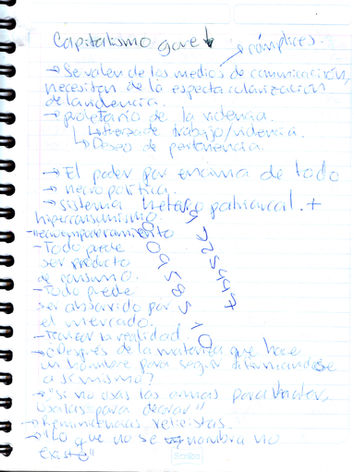 Capitalismo gore
→ cómplices.
→ Se valen de los medios de comunicación,
necesitan de la espectacularización
de la violencia.
→ proletario de la violencia.
↳ fuerza de trabajo/violencia.
↳ Deseo de pertenencia.
→ El poder por encima de todo
→ necropolítica.
→ sistema heteropatriarcal. +
hiperconsumismo
→ necroempoderamiento
- Todo puede
ser producto
de consumo.
- Todo puede
ser absorbido por
el mercado.
la realidad
→ ¿Después de la que hace
un hombre para seguir
a sí mismo?
→ "si no usas las armas para
úsalas para decorar"
→ Reminiscencias
→ "Lo que no se nombra no
existe"
Scribe